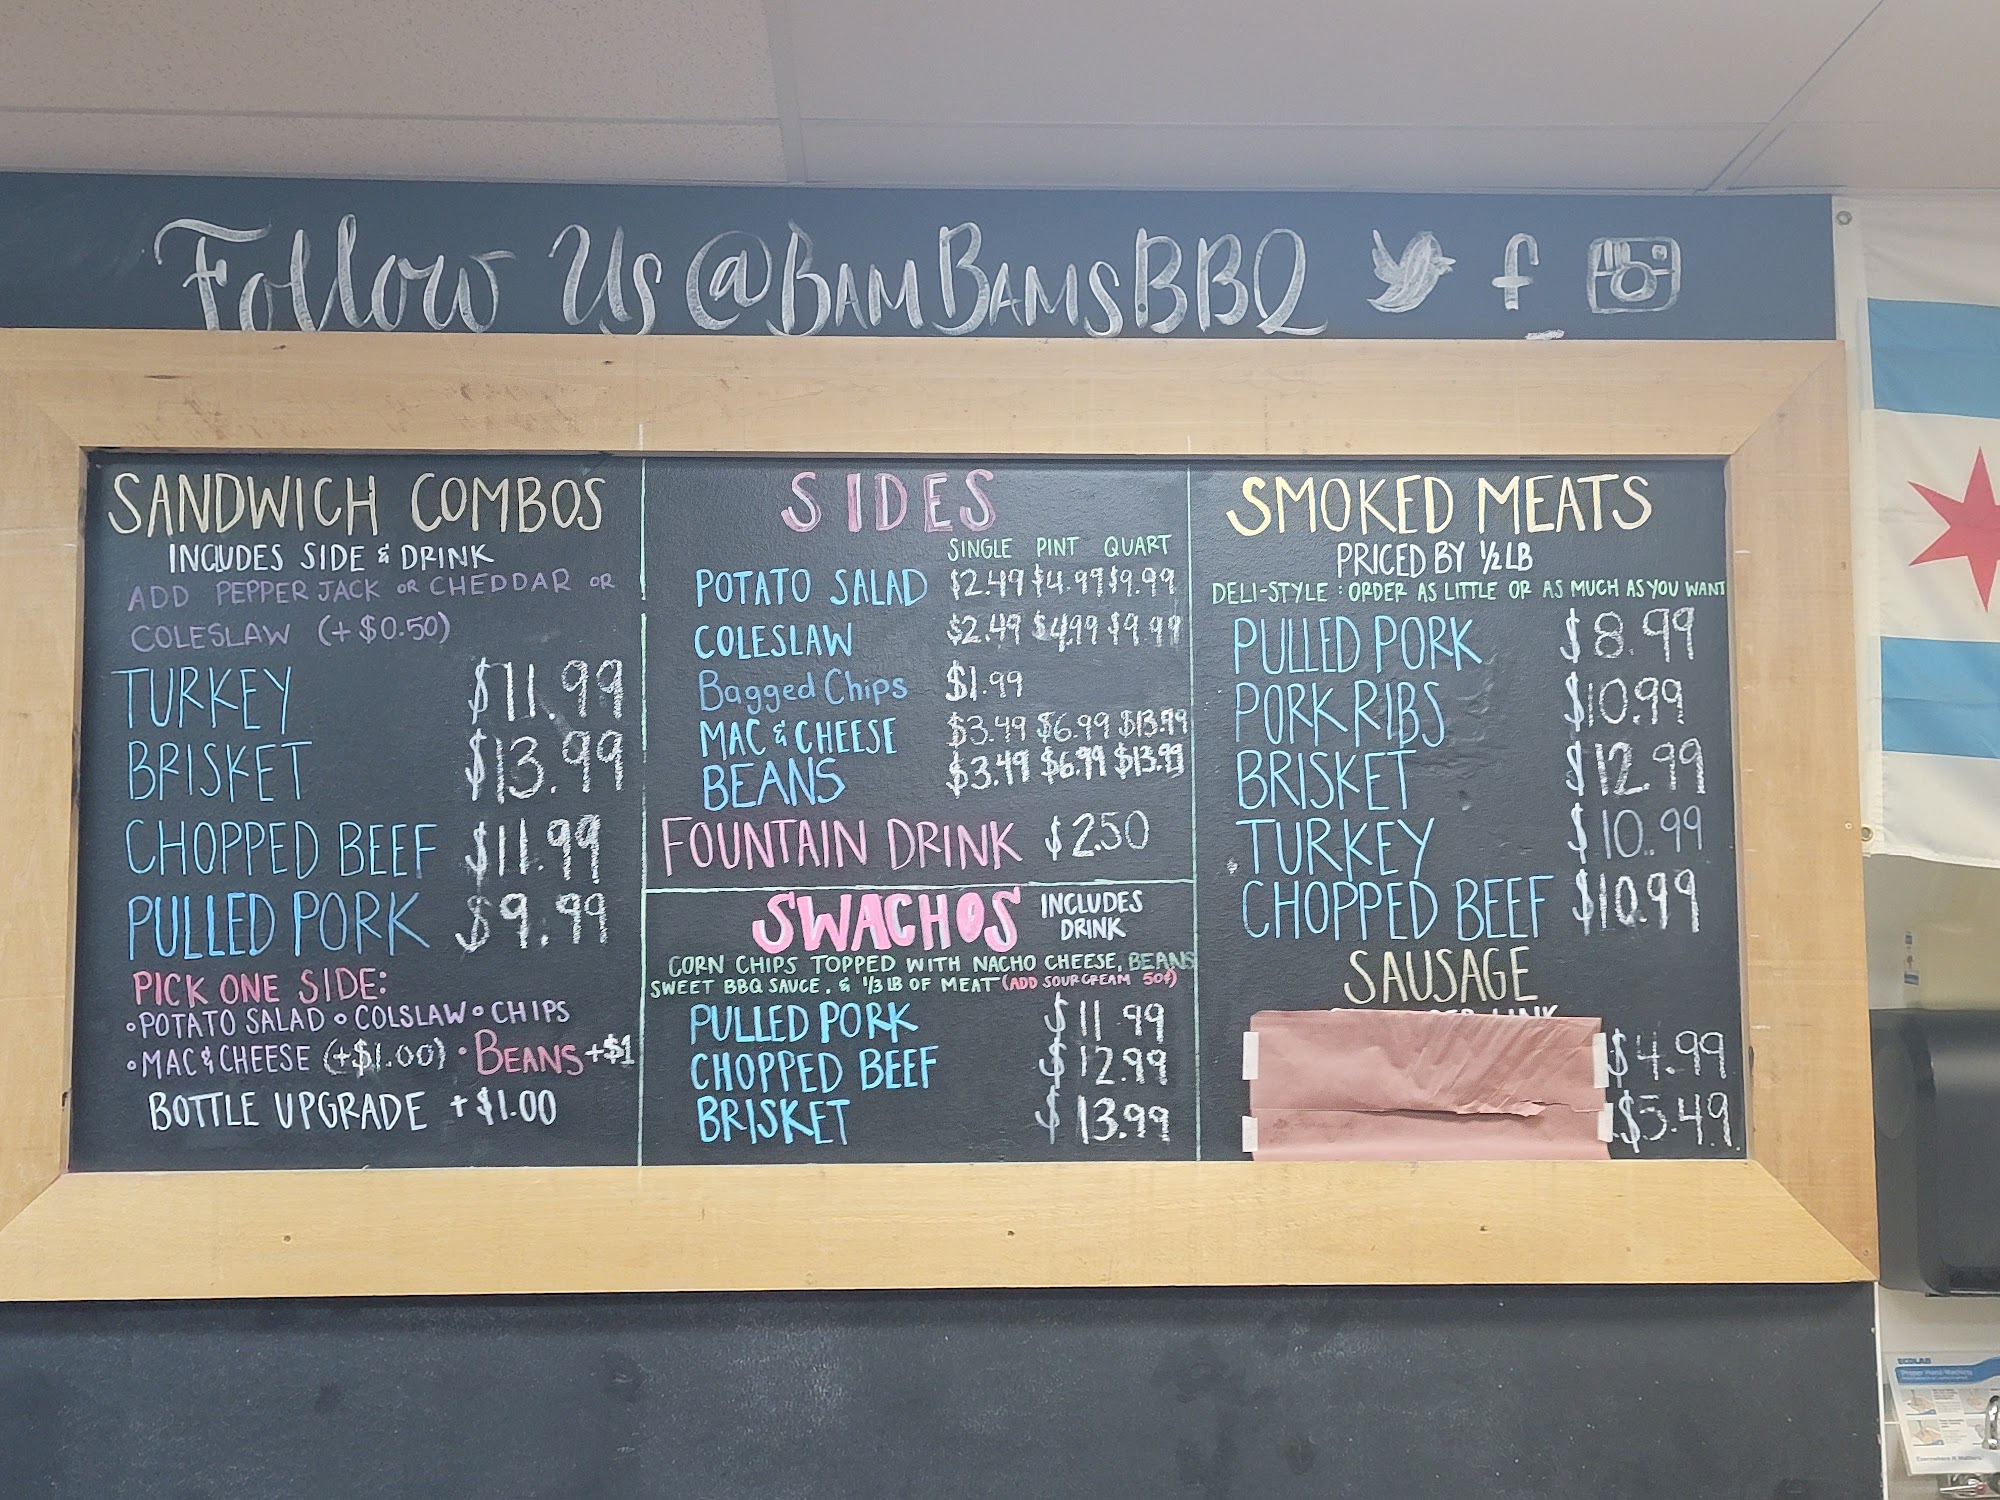 Follow Us @BAMBAMSBBQ f
SANDWICH COMBOS
INCLUDES SIDE & DRINK
ADD PEPPER JACK OR CHEDDAR OR
COLESLAW (+$0.50)
TURKEY $11.99
BRISKET $13.99
CHOPPED BEEF $11.99
PULLED PORK $9.99
PICK ONE SIDE:
•POTATO SALAD •COLSLAW •CHIPS
•MAC & CHEESE (+$1.00) •BEANS +$1
BOTTLE UPGRADE +$1.00
SIDES
SINGLE PINT QUART
POTATO SALAD $2.49 $4.99 $9.99
COLESLAW $2.49 $4.99 $9.99
Bagged Chips $1.99
MAC & CHEESE $3.49 $6.99 $13.99
BEANS $3.49 $6.99 $13.99
FOUNTAIN DRINK $2.50
SWACHOS INCLUDES
DRINK
CORN CHIPS TOPPED WITH NACHO CHEESE, BEANS
SWEET BBQ SAUCE, & 1/3 LB OF MEAT (ADD SOUR CREAM 50¢)
PULLED PORK $11.99
CHOPPED BEEF $12.99
BRISKET $13.99
SMOKED MEATS
PRICED BY 1/2 LB
DELI-STYLE: ORDER AS LITTLE OR AS MUCH AS YOU WANT
PULLED PORK $8.99
PORK RIBS $10.99
BRISKET $12.99
TURKEY $10.99
CHOPPED BEEF $10.99
SAUSAGE
$4.99
$5.49
ECOLAB
Proper Hand Washing
Everywhere It Matters